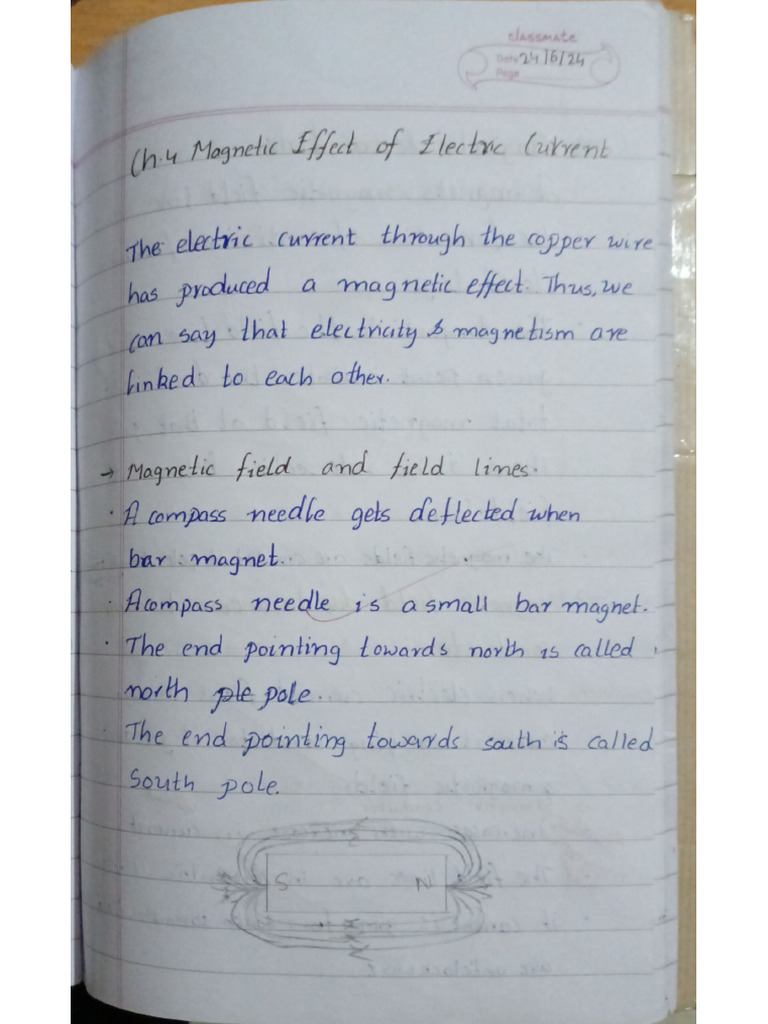 classmate
Date 24/6/24
Page
Ch.4 Magnetic Effect of Electric Current
The electric current through the copper wire
has produced a magnetic effect. Thus, we
can say that electricity & magnetism are
linked to each other.
→ Magnetic field and field lines.
· A compass needle gets deflected when
bar magnet.
· A compass needle is a small bar magnet.
· The end pointing towards north is called
north ple pole.
· The end pointing towards south is called
South pole.
S N